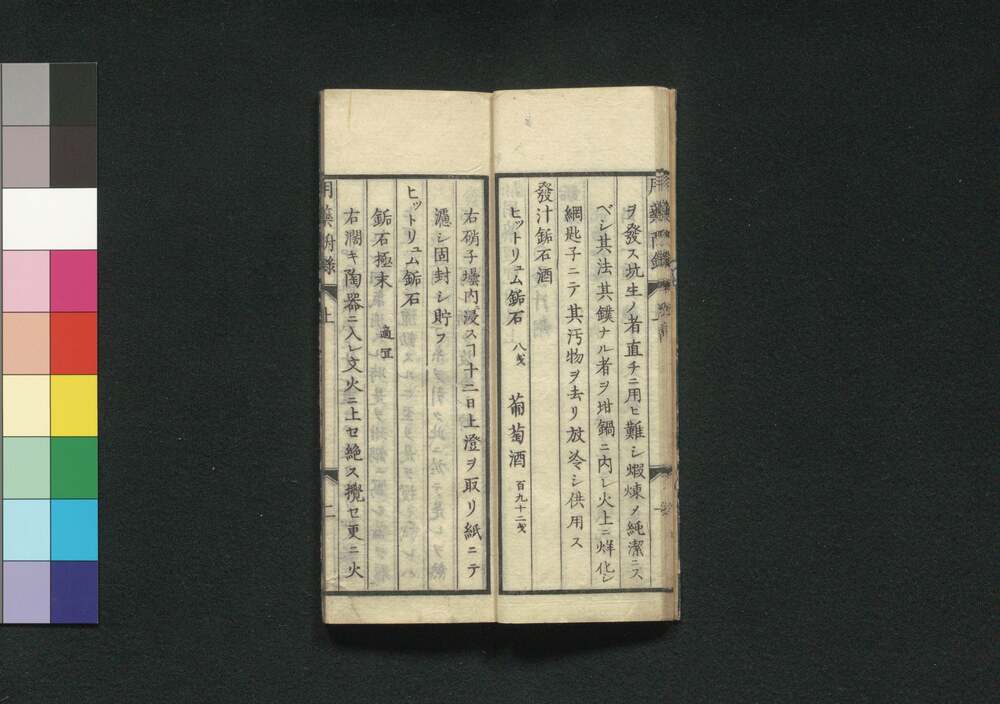 ヲ發ス坑生ノ者直チニ用ヒ難シ煆煉メ純潔ニス
ベシ其法其鏷ナル者ヲ坩鍋ニ内レ火上ニ烊化シ
網匙子ニテ其汚物ヲ去リ放冷シ供用ス
發汁鉐石酒
ヒットリュム鉐石 八戔 葡萄酒 百九十二戔
右硝子壜内浸スヿ十二日上澄ヲ取リ紙ニテ
濾シ固封シ貯フ
ヒットリュム鉐石
鉐石極末 適宜
右濶キ陶器ニ入レ文火ニ上セ絶ス攪セ更ニ火
用藥附録 上 二